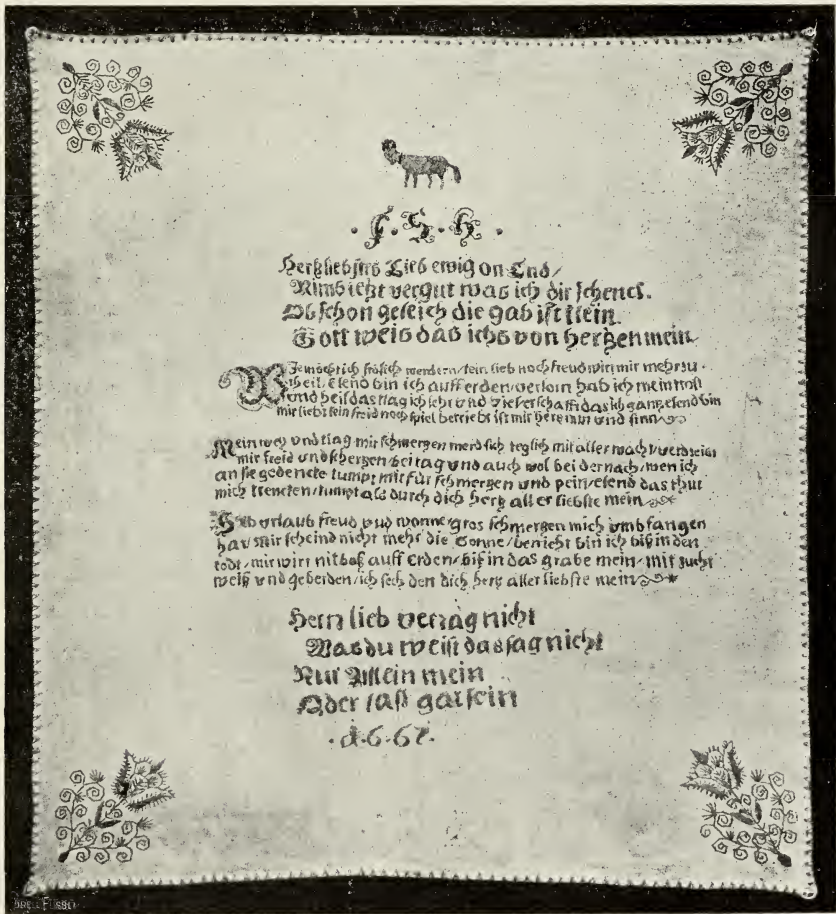 ·J·S·H·
Hertzliebstes Lieb ewig on End/
Nimb ietzt vergut was ich dir schenck.
Ob schon geleich die gab ist klein.
Gott weis das ichs von hertzen mein
Wie möcht ich frölich werden/kein lieb noch freud wirt mir mehr zu·
theil/Elend bin ich auff erden/verlorn hab ich mein trost
und heil das klag ich ietzt und
mir liebt kein freid noch spiel betriebt ist mir hertz mut und sinn
Mein wey und klag mir schmertzen merd sich teglich mit aller macht/
mir freid und schertzen/bei tag und auch wol bei der nach/wen ich
an sie gedencke kumpt mir für schmertzen und pein/elend das thut
mich krencken/kumpt als durch dich hertz aller liebste mein
Hab urlaub freud vnd wonne/gros schmertzen mich umbfangen
hat/mir scheind nicht mehr die Sonne/ bin ich biß in den
todt/mir wirt nit baß auff Erden/biß in das grabe mein/mit zucht
weiß und geberden/ich sech den dich hertz aller liebste mein
Hertz lieb vertrag nicht
Was du weist das sag nicht
Nur Allein mein
Oder laß gar sein
·1·6·67·